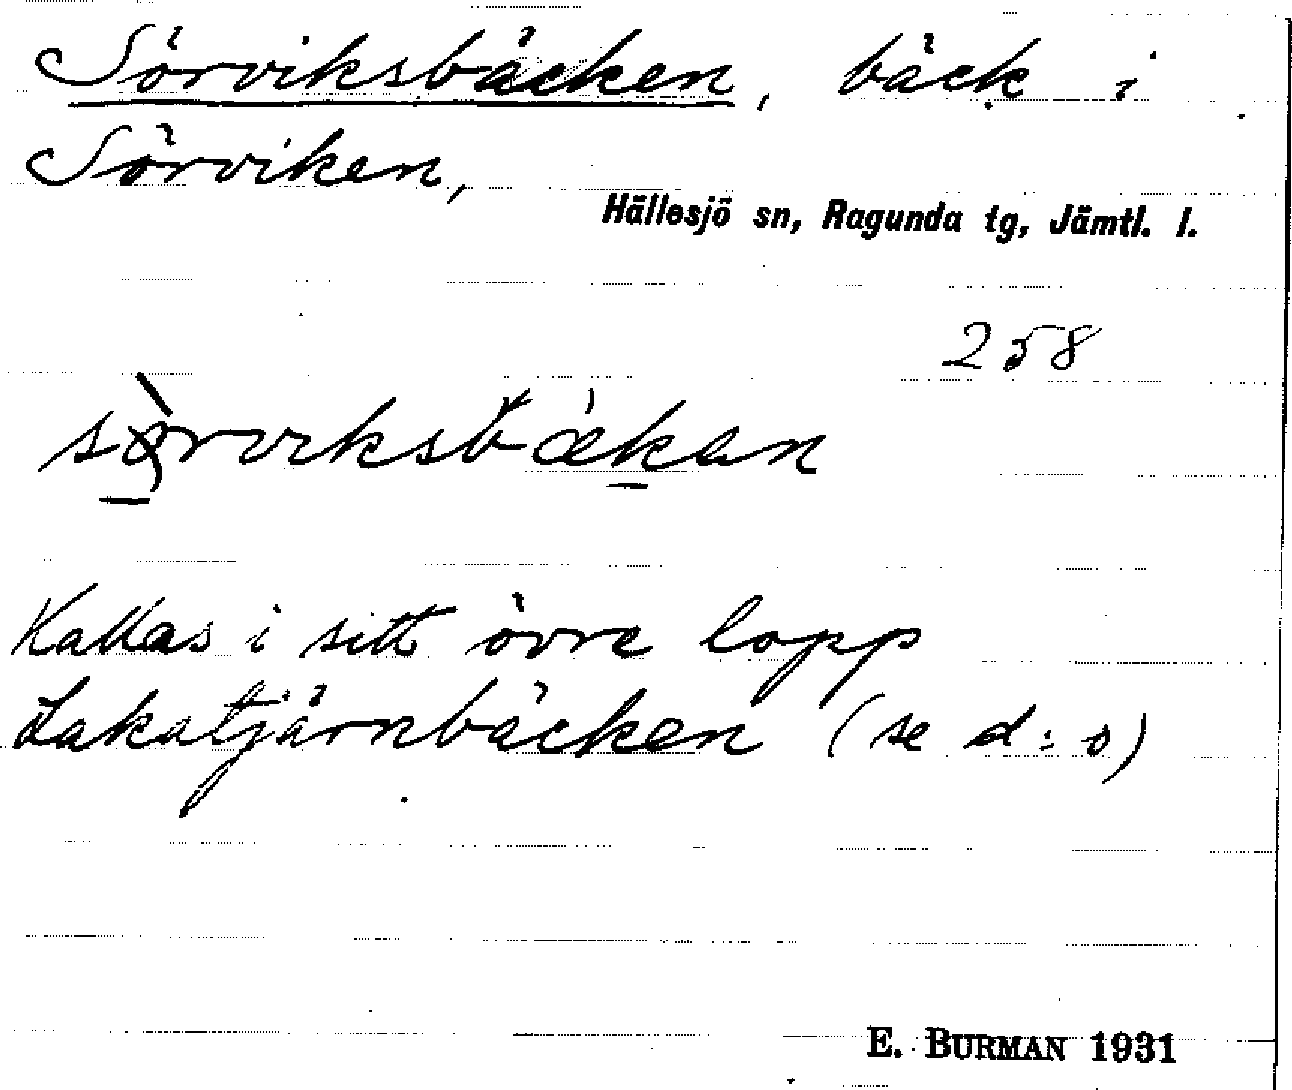 Sörviksbäcken, bäck i
Sörviken,
Hällesjö sn, Ragunda tg, Jämtl. l.
258
sø̀rviksbækan
Kallas i sitt övre lopp
Lakatjärnbäcken (se d:o)
E. BURMAN 1931